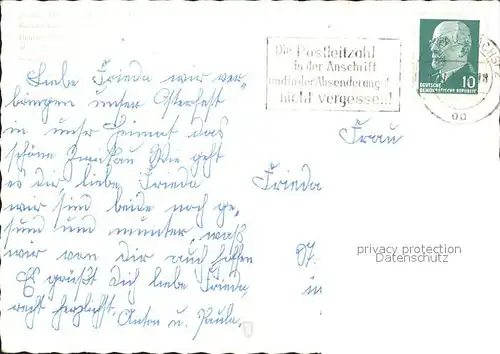 Die Postleitzahl
in der Anschrift
und in der Absenderangabe
nicht vergessen!
10
DEUTSCHE
DEMOKRATISCHE REPUBLIK
18
Liebe Frieda wir ver-
bringen unser Osterfest
in unser Heimat das
schöne Zwickau Wie geht
es dir, liebe Frieda
wir sind beide noch ge-
sund und munter, was
wir von dir auch hoffen
Es grüßt Dich liebe Frieda,
recht herzlichst.
Anton u. Paula.
Frau
Frieda
St.
in
privacy protection
Datenschutz